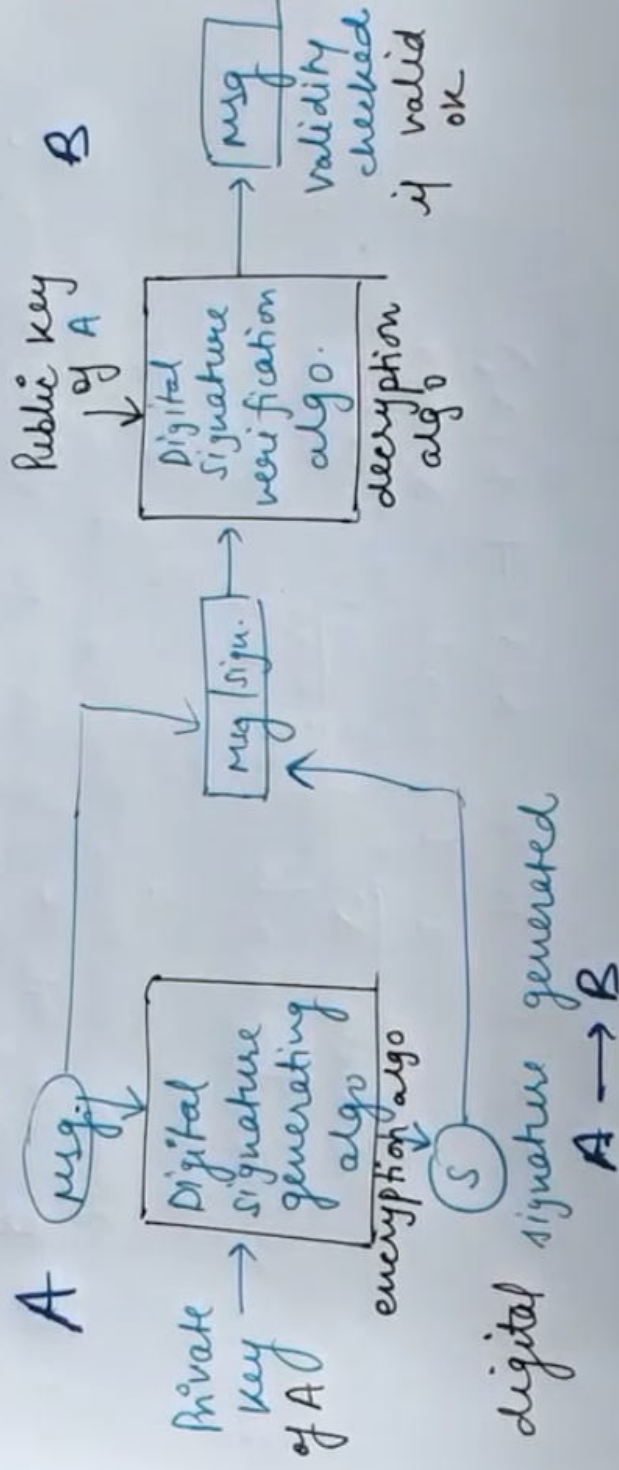 A
Msg.
Private
key
of A
Digital
signature
generating
algo
encryption algo
S
digital signature generated
A → B
Msg sign.
Public key
of A
Digital
signature
verification
algo.
decryption
algo
B
Msg
validity
checked
if valid
ok